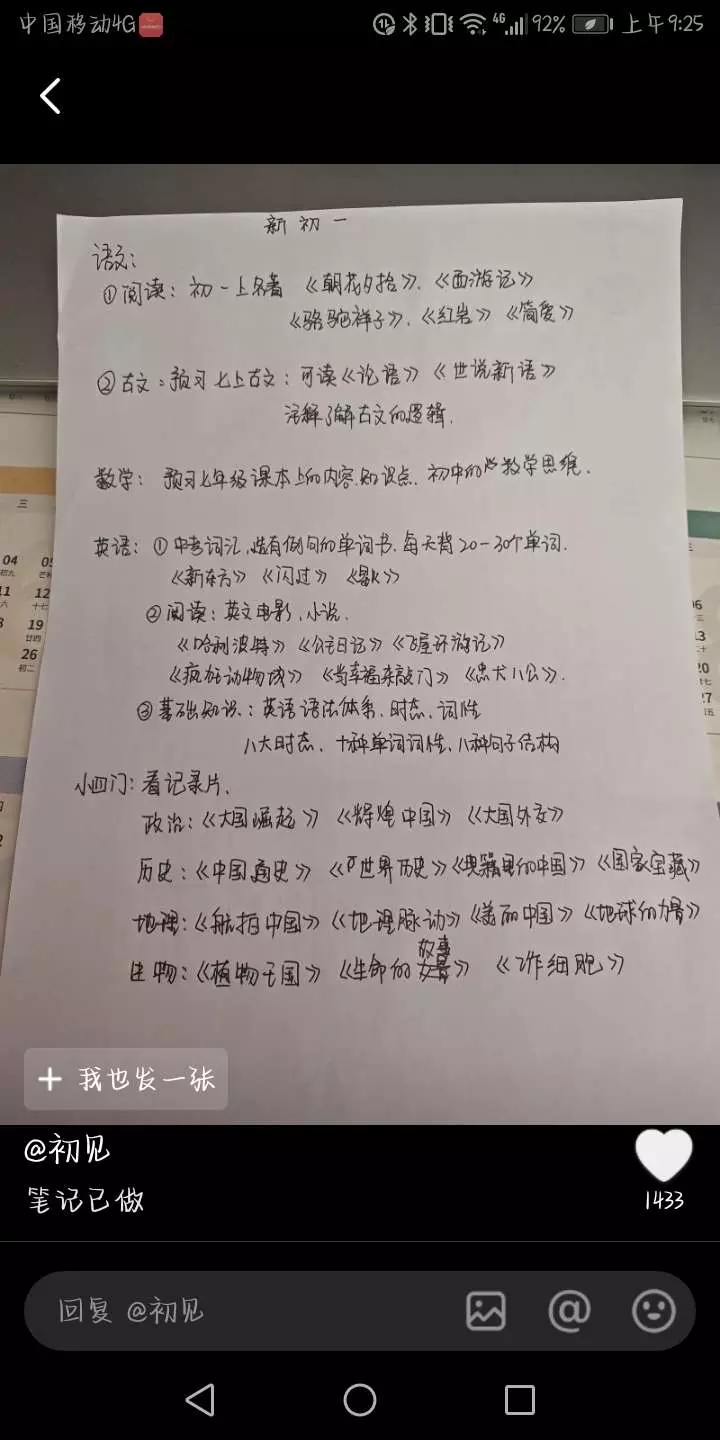 中国移动4G
4G
92%
上午9:25
新初一
语文:
①阅读: 初一上名著 《朝花夕拾》、《西游记》
《骆驼祥子》、《红岩》《简爱》
②古文: 预习七上古文: 可读《论语》《世说新语》
注解了解古文的逻辑.
数学: 预习七年级课本上的内容.知识点. 初中的 数学思维.
英语: ①中考词汇,选有例句的单词书.每天背20-30个单词.
《新东方》《闪过》
②阅读: 英文电影.小说.
《哈利波特》《公主日记》《飞屋环游记》
《疯狂动物城》《当幸福来敲门》《忠犬八公》.
③基础知识: 英语语法体系. 时态. 词性
八大时态. 十种单词词性、八种句子结构
小四门: 看记录片.
政治:《大国崛起》《辉煌中国》《大国外交》
历史:《中国通史》《世界历史》《典籍里的中国》《国家宝藏》
地理:《航拍中国》《地理脉动》《美丽中国》《地球的力量》
故事
生物:《植物王国》《生命的 》 《 细胞》
三
04
初九
12
十七
19
廿四
26
初二
我也发一张
@初见
笔记已做
1433
回复 @初见